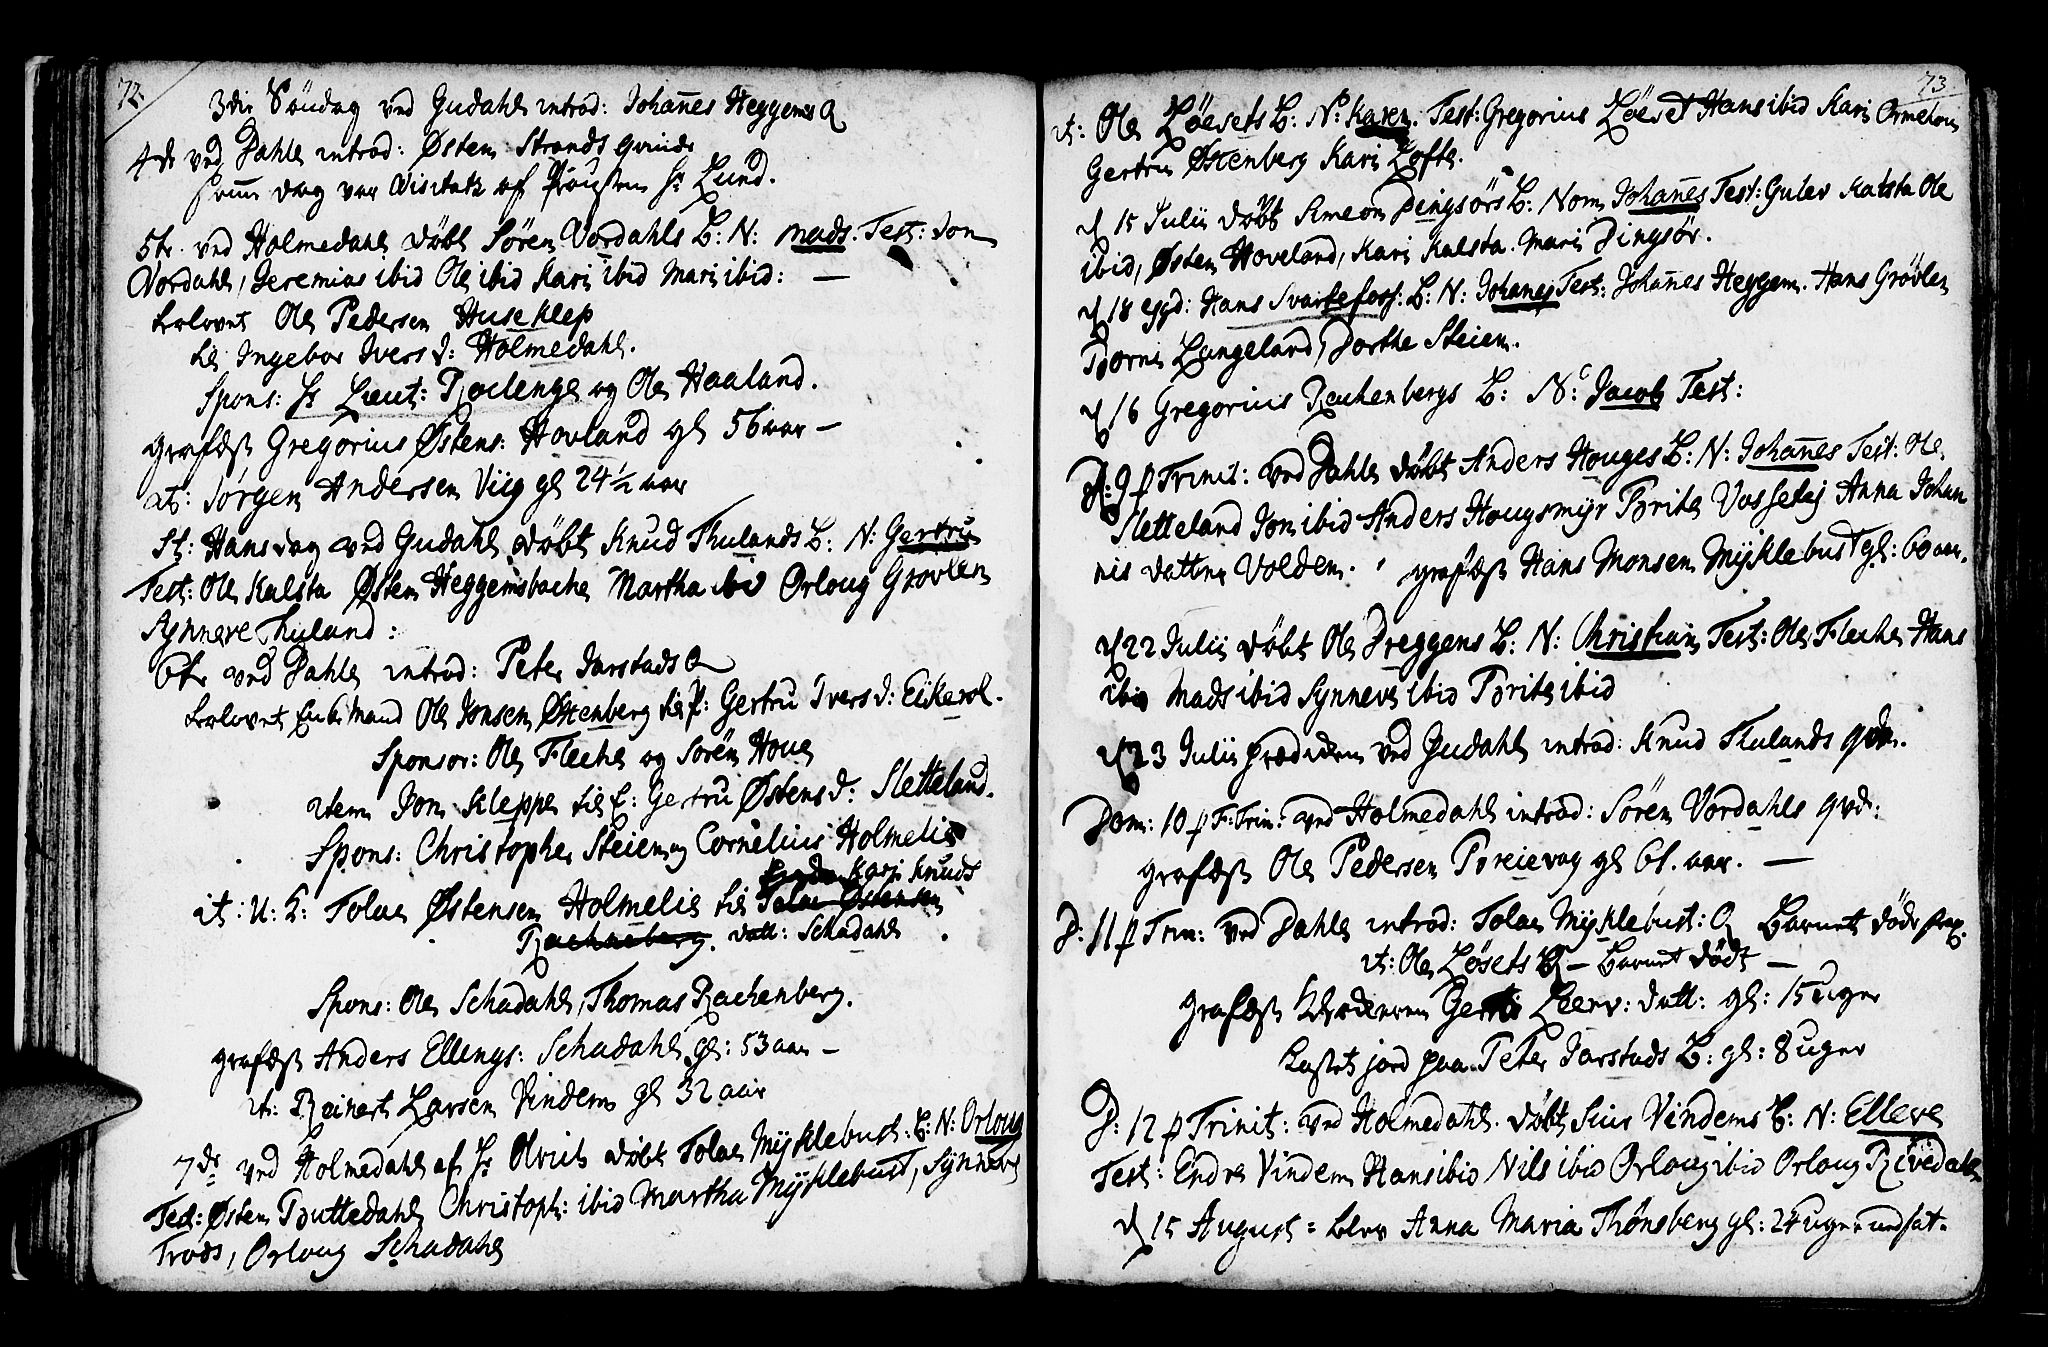 72.
3die Söndag ved Gudahl introd: Johan̄es Heggems Q
4de ved Dahle introd: Østen Strands qvinde
sam̄e dag var Visitatz af Prousten Hr Lund.
5te ved Holmedahl döbt Sören Vordahls B: N: Mads. Test: Jon
Vordahl, Jeremias ibid Ole ibid Kari ibid Mari ibid: —
trolovet Ole Pedersen Huseklep
til Ingebor Ivers d: Holmedahl.
Spons: Hr Lieut: og Ole Haaland.
grafæst Gregorius Østens: Hovland gl 56 aar —
it: Jörgen Andersen Viig gl 24½ aar
St: Hans dag ved Gudahl döbt Knud Thulands B: N: Gertru
Test: Ole Kalsta Østen Heggemsbache Martha ibid Orloug Grovlen
Synneve Thuland:
6te ved Dahle introd: Peter Jarstads Q
trolovet Enke Mand Ole Jonsen Østenberg til P: Gertru Ivers d: Eikerol.
Sponsor: Ole Fleche og Sören Houe
item Jon Kleppe til E: Gertru Østens d: Sletteland.
Spons: Christopher Steien og Cornelius Holmelid
Kari Knuds
it: U: K: Tolae Østensen Holmelid til Tolae Østensen
Rachneberg. datt: Schadahl
Spons: Ole Schadahl, Thomas Rachenberg.
grafæst Anders Ellings: Schadahl gl: 53 aar —
it: Reinert Larsen Vindem gl 32 aar
7de ved Holmedahl af Hr Olrich döbt Tolae Myklebust: B: N: Orloug
Test: Østen Bruttedahl Christoph: ibid Martha Myklebust, Synneve
Trods, Orloug Schadahl
73
it: Ole Löesets B: N: Karen. Test: Gregorius Löeset Hans ibid Kari
Gertru Østenberg Kari Lofte.
d 15 Julii döbt Simeon Dingsörs B: Nom Johan̄es Test: Gulev Kalsta Ole
ibid, Østen Hoveland, Kari Kalsta. Mari Dingsör.
d 18 Hans Svartefoss: B: N: Johanes Test: Johan̄es Heggem. Hans Grövlen
Borni Langeland, Dorthe Steien.
d 16 Gregorius Rachenbergs B: N: Jacob Test:
D: 9 p Trinit: ved Dahle döbt Anders Houges B: N: Johan̄es Test: Ole
Sletteland Jon ibid Anders Hougsmyr Brite Vassetej Anna Johan
nis datter Volden. grafæst Hans Monsen Myklebust gl: 60 aar.
d 22 Julii döbt Ole Dreggens B: N: Christian Test: Ole Fleche Hans
ibid Mads ibid Synneve ibid Brite ibid
d 23 Julii prædiken ved Gudahl introd: Knud Thulands qvde.
Dom: 10 p F: Trin: ved Holmedahl introd: Sören Vordahls qvd:
grafæst Ole Pedersen Breievog gl 61. aar. —
D: 11 p Trin: ved Dahle introd: Tolae Myklebust: Q Barnet döde
it: Ole Lösets Q — Barnet dödt —
grafæst Leerv: datt: gl: 15 uger
Kastet jord paa Peter Jarstads B: gl: 8 uger
D: 12 p Trinit: ved Holmedahl. döbt Siur Vindems B: N: Elleve
Test: Endre Vindem Hans ibid Nils ibid Orloug ibid Orloug Rivedahl
d 15 August: blev Anna Maria Thönsberg gl: 24 uger nedsat.